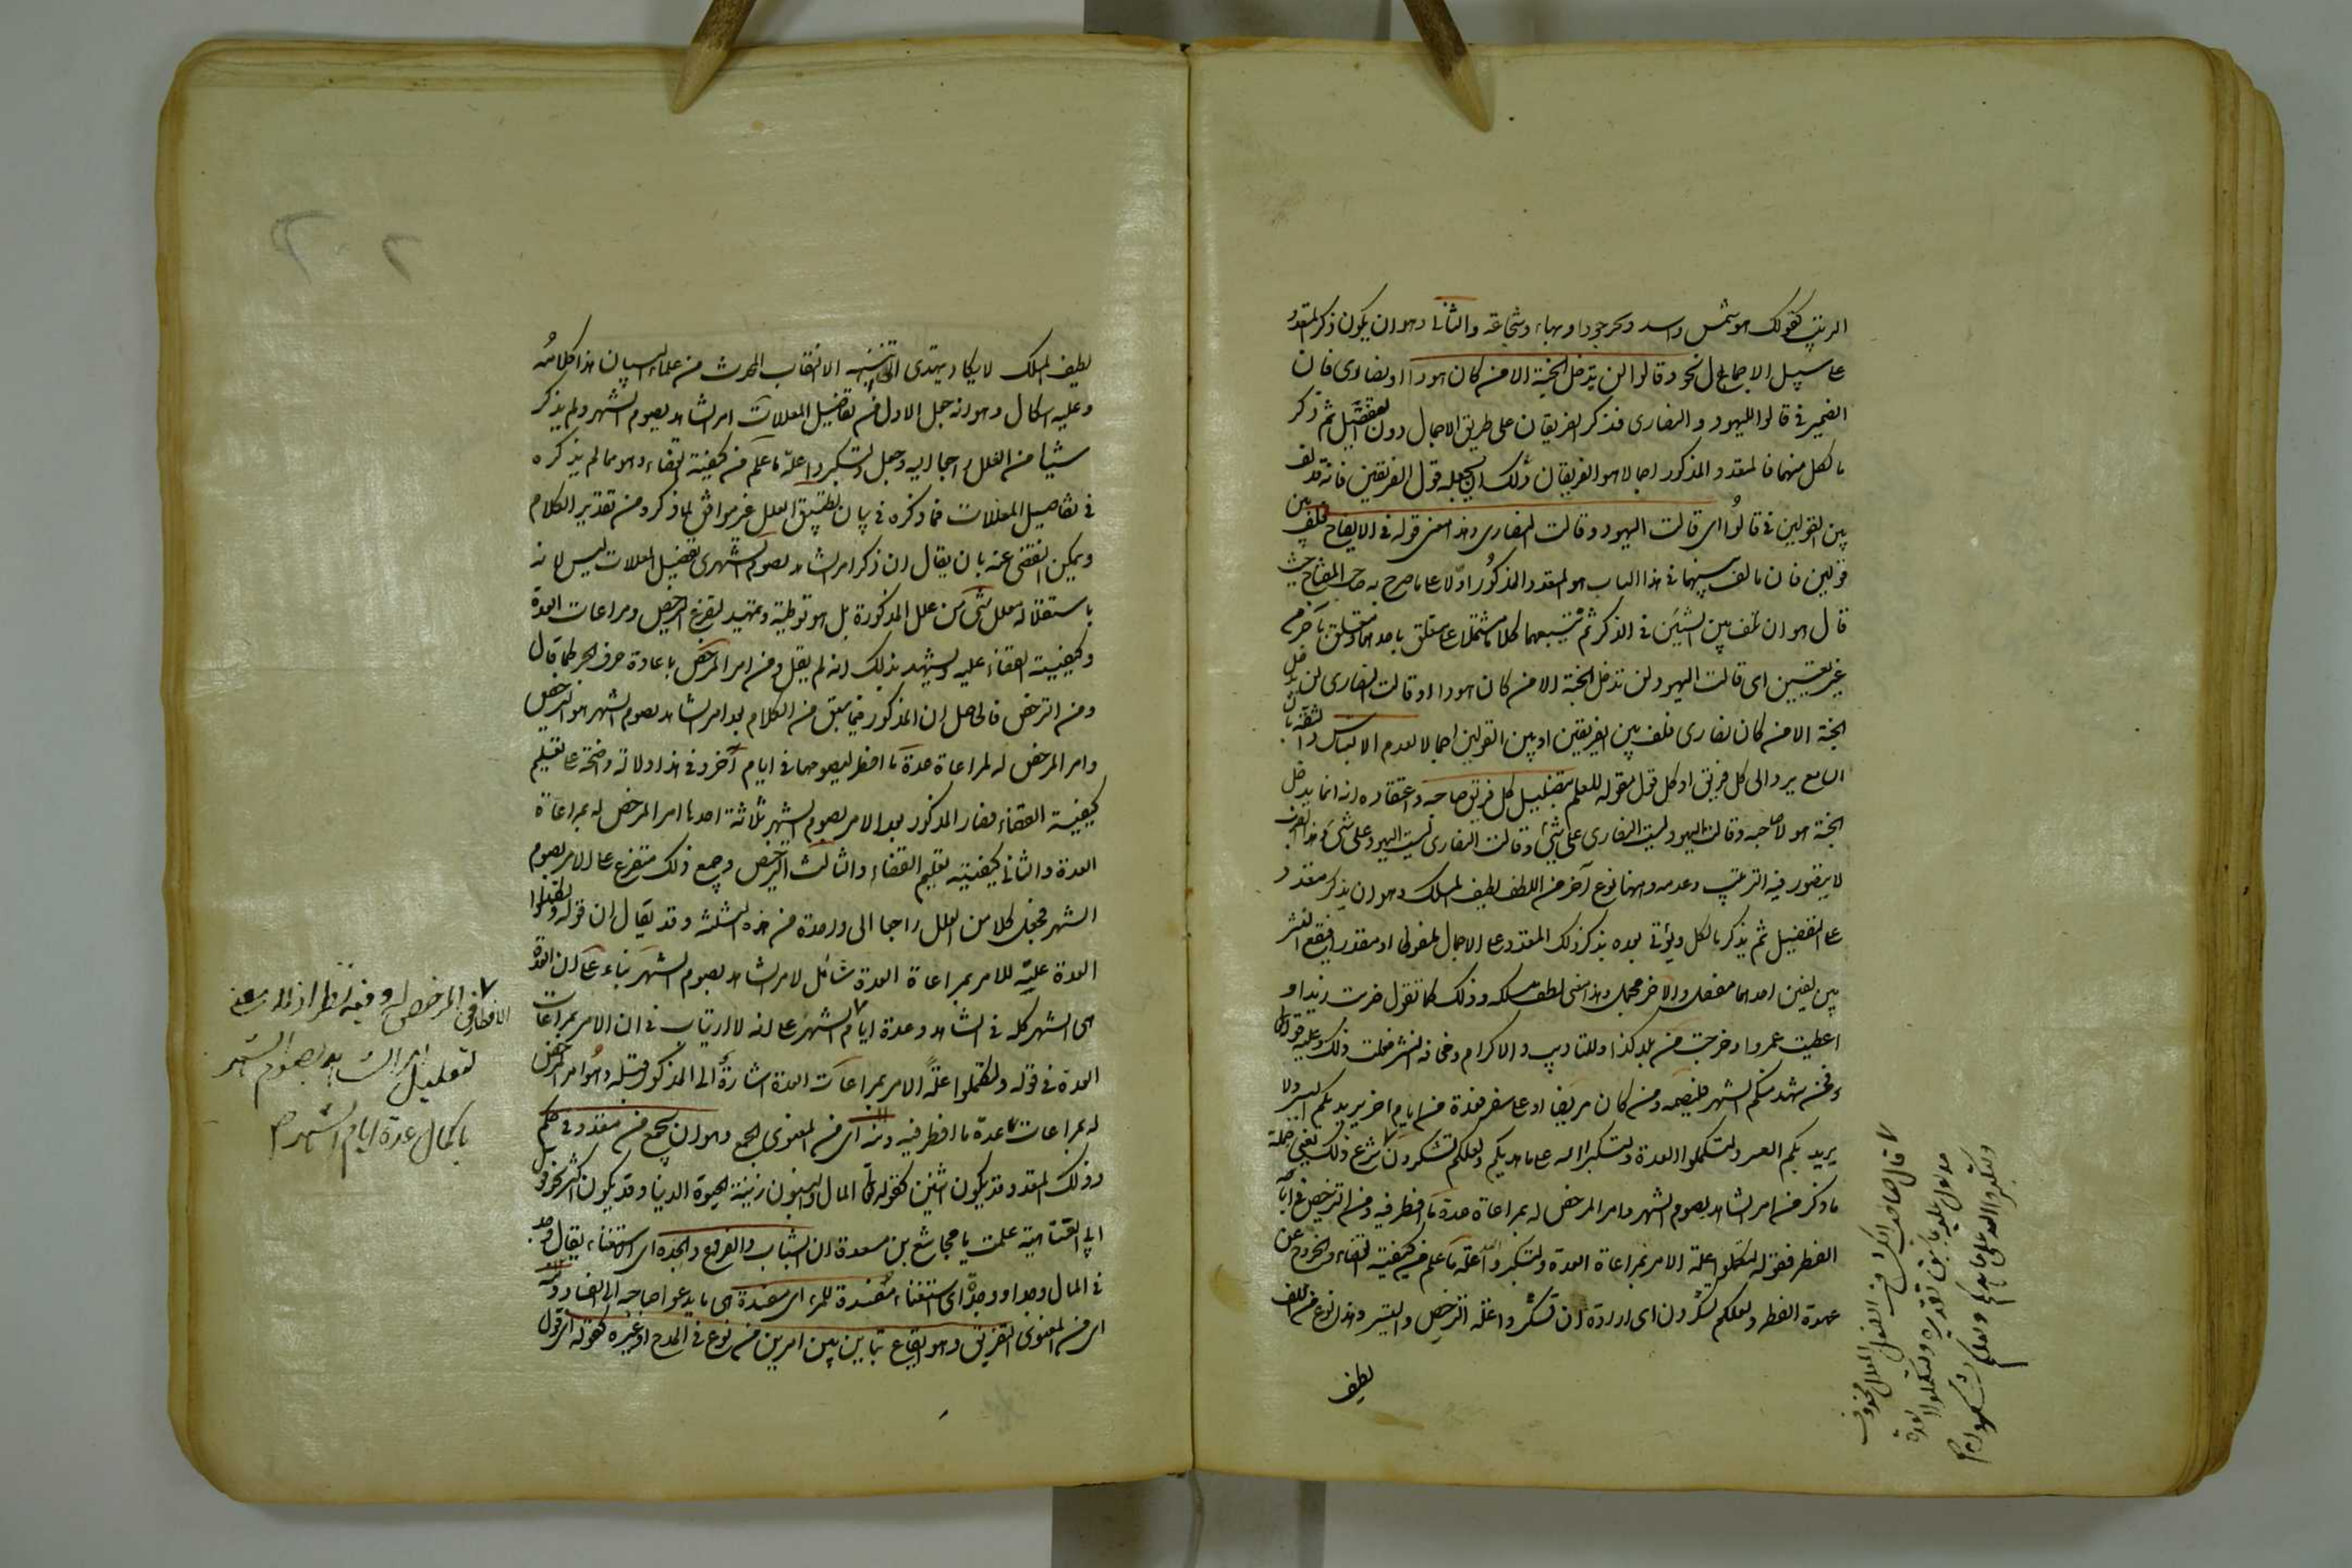 الترتيب كقولك هو شمس واسد وبحر جودا وبهاء وشجاعة والثانى وهو ان يكون ذكر المتعدد
على سبيل الاجمال نحو وقالوا لن يدخل الجنة الا من كان هودا او نصارى فان
الضمير فى قالوا لليهود والنصارى فذكر الفريقان على طريق الاجمال دون التفصيل ثم ذكر
ما لكل منهما فالمتعدد المذكور اجمالا هو الفريقان ولك ان تجعله قول الفريقين فانه قد لف
بين القولين فى قالوا اى قالت اليهود وقالت النصارى وهذا معنى قوله فى الايضاح فلف بين
قولين فان ما لف بينهما فى هذا الباب هو المتعدد المذكور اولا على ما صرح به صاحب المفتاح حيث
قال هو ان تلف بين الشيئين فى الذكر ثم تتبعهما كلاما مشتملا على متعلق باحدهما ومتعلق بآخر من
غير تعيين اى قالت اليهود لن تدخل الجنة الا من كان هودا وقالت النصارى لن يدخل
الجنة الا من كان نصارى فلف بين الفريقين او بين القولين اجمالا لعدم الالتباس والثقة بان
السامع يرد الى كل فريق او كل قول مقوله للعلم بتضليل كل فريق صاحبه واعتقاده انه انما يدخل
الجنة هو لا صاحبه وقالت اليهود ليست النصارى على شئ وقالت النصارى ليست اليهود على شئ وهذا الضرب
لا يتصور فيه الترتيب وعدمه وههنا نوع آخر من اللف لطيف المسلك وهو ان يذكر متعدد
على التفصيل ثم يذكر ما لكل ويؤتى بعده بذكر ذلك المتعدد على الاجمال ملفوظا او مقدرا فيقع النشر
بين لفين احدهما مفصل والاخر مجمل وهذا معنى لطف مسلكه وذلك كما تقول ضربت زيدا و
اعطيت عمروا وخرجت من بلد كذا وللتاديب والاكرام ومخافة الشر فعلت ذلك وعليه قوله تعالى
فمن شهد منكم الشهر فليصمه ومن كان مريضا او على سفر فعدة من ايام اخر يريد بكم اليسر ولا
يريد بكم العسر ولتكملوا العدة ولتكبروا الله على ما هديكم ولعلكم تشكرون شرع ذلك يعنى جملة
ما ذكر من امر الشاهد بصوم الشهر وامر المرخص له بمراعاة عدة ما افطر فيه ومن الترخيص فى اباحة
الفطر فقوله لتكملوا علة الامر بمراعاة العدة ولتكبروا الله علة ما علم من كيفية القضاء والخروج عن
عهدة الفطر ولعلكم تشكرون اى ارادة ان تشكروا علة الترخيص والتيسير وهذا نوع من اللف
لطيف
٧ قال صاحب الكشاف الفعل المعلل محذوف
مدلول عليه بما سبق تقديره ولتكملوا العدة
ولتكبروا الله على ما هديكم ولعلكم تشكرون
لطيف المسلك لا يكاد يهتدى الى تبينه الا النقاب المحدث من علماء البيان هذا كلامه
وعليه اشكال وهو انه جعل الاول من تفاصيل المعللات امر الشاهد بصوم الشهر ولم يذكر
شيئا من العلل راجعا اليه وجعل ولتكبروا علة ما علم من كيفية القضاء وهو مما لم يذكره
فى تفاصيل المعللات فما ذكره فى بيان تطبيق العلل غير موافق لما ذكره من تقدير الكلام
ويمكن التفصى عنه بان يقال ان ذكر امر الشاهد بصوم الشهر فى تفصيل المعللات ليس لانه
باستقلاله معلل بشئ من علل المذكورة بل هو توطية وتمهيد لتفرع الترخيص ومراعات العدة
وكيفية القضاء عليه ويشهد بذلك انه لم يقل ومن امر المرخص باعادة حرف الجر كما قال
ومن الترخيص فالحاصل ان المذكور فيما سبق من الكلام بعد امر الشاهد بصوم الشهر هو الترخيص
وامر المرخص له لمراعاة عدة ما افطر ليصومها فى ايام اخر وفى هذا دلالة واضحة على تعليم
كيفية القضاء فصار المذكور بعد الامر بصوم الشهر ثلاثة احدها امر المرخص له بمراعاة
العدة والثانى كيفية تعليم القضاء والثالث الترخيص وجميع ذلك متفرع على الامر بصوم
الشهر فجعل كلا من العلل راجعا الى واحدة من هذه الثلثة وقد يقال ان قوله ولتكملوا
العدة علة للامر بمراعاة العدة شامل لامر الشاهد بصوم الشهر بناء على ان العدة
هى الشهر كله فى الشاهد وعدة ايام الشهر ٧ على انه لا ارتياب فى ان الامر بمراعات
العدة فى قوله ولتكملوا علة الامر بمراعات العدة اشارة الى المذكور قبله وهو امر المرخص
له بمراعات عدة ما افطر فيه ومنه اى من المعنوى الجمع وهو ان يجمع من متعدد فى حكم
وذلك المتعدد قد يكون اثنين كقوله تعالى المال والبنون زينة الحيوة الدنيا وقد يكون اكثر نحو قول
ابى العتاهية علمت يا مجاشع بن مسعدة ان الشباب والفراغ والجدة اى الاستغناء يقال وجد
فى المال وجدا ووجدا وجدة اى استغناء مفسدة للمرء اى مفسدة هى ما يدعو صاحبه الى الفساد ومنه
اى من المعنوى التفريق وهو ايقاع تباين بين امرين من نوع فى المدح او غيره كقوله
٧ المرخص له وفيه نظر اذ لا معنى
الافطار فى
لتعليل امر الشاهد بصوم الشهر
باكمال عدة ايام الشهر